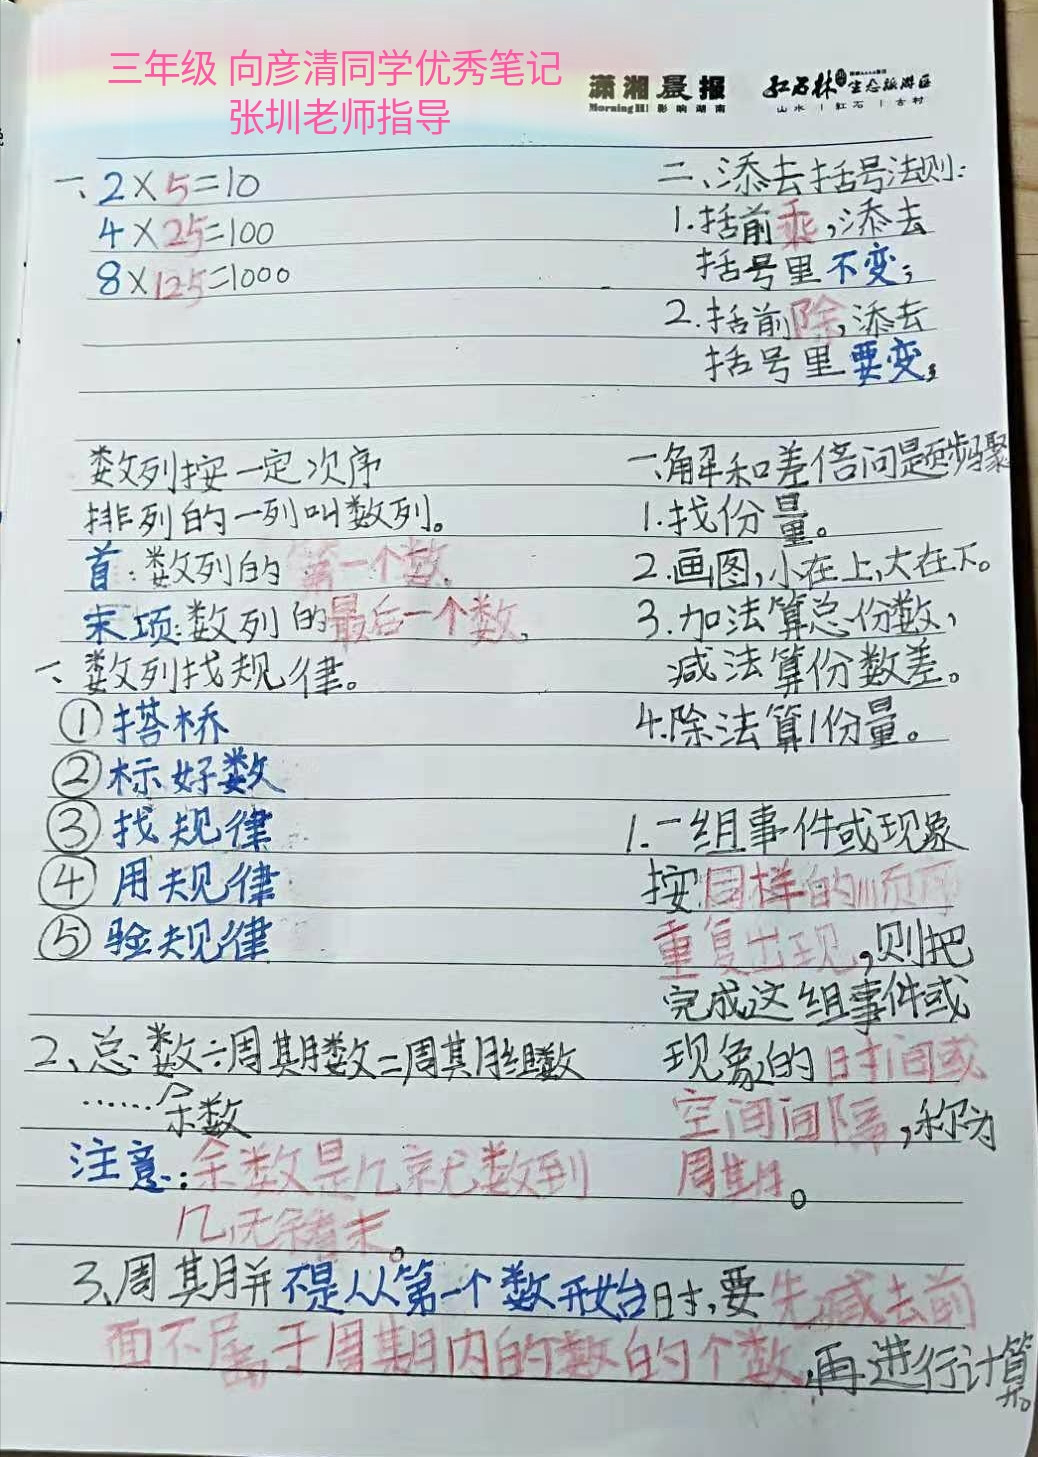 三年级 向彦清同学优秀笔记
张圳老师指导
潇湘晨报
Morning H! 影响湖南
红石林 生态旅游区
山水 | 红石 | 古村
一、2×5=10
4×25=100
8×125=1000
二、添去括号法则:
1.括前乘,添去
括号里不变;
2.括前除,添去
括号里要变;
数列按一定次序
排列的一列叫数列。
首:数列的第一个数。
末项:数列的最后一个数。
一、数列找规律。
①搭桥
②标好数
③找规律
④用规律
⑤验规律
一、解和差倍问题步骤
1.找份量。
2.画图,小在上,大在下。
3.加法算总份数,
减法算份数差。
4.除法算1份量。
1.一组事件或现象
按同样的顺序
重复出现,则把
完成这组事件或
现象的时间或
空间间隔,称为
周期。
2、总数÷周期数=周期组数
……余数
注意:余数是几就无数到
几,无余看末。
3、周期并不是从第一个数开始时,要先减去前
面不属于周期内的数的个数,再进行计算。